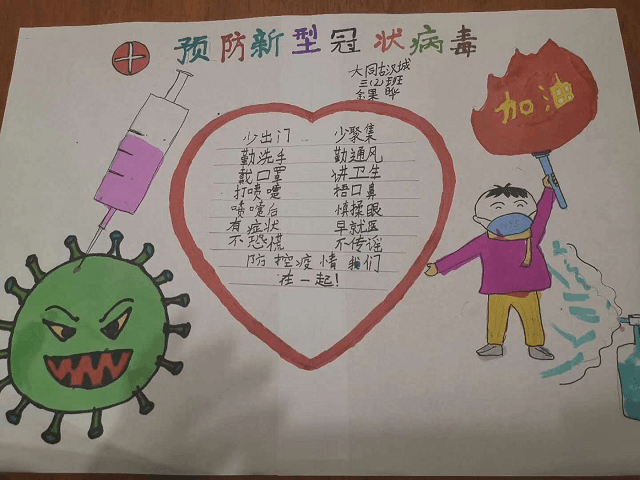 预防新型冠状病毒
大同古汉城
三(2)班
加油
少出门 少聚集
勤洗手 勤通风
戴口罩 讲卫生
打喷嚏 捂口鼻
喷嚏后 慎揉眼
有症状 早就医
不恐慌 不传谣
防控疫情我们
在一起!